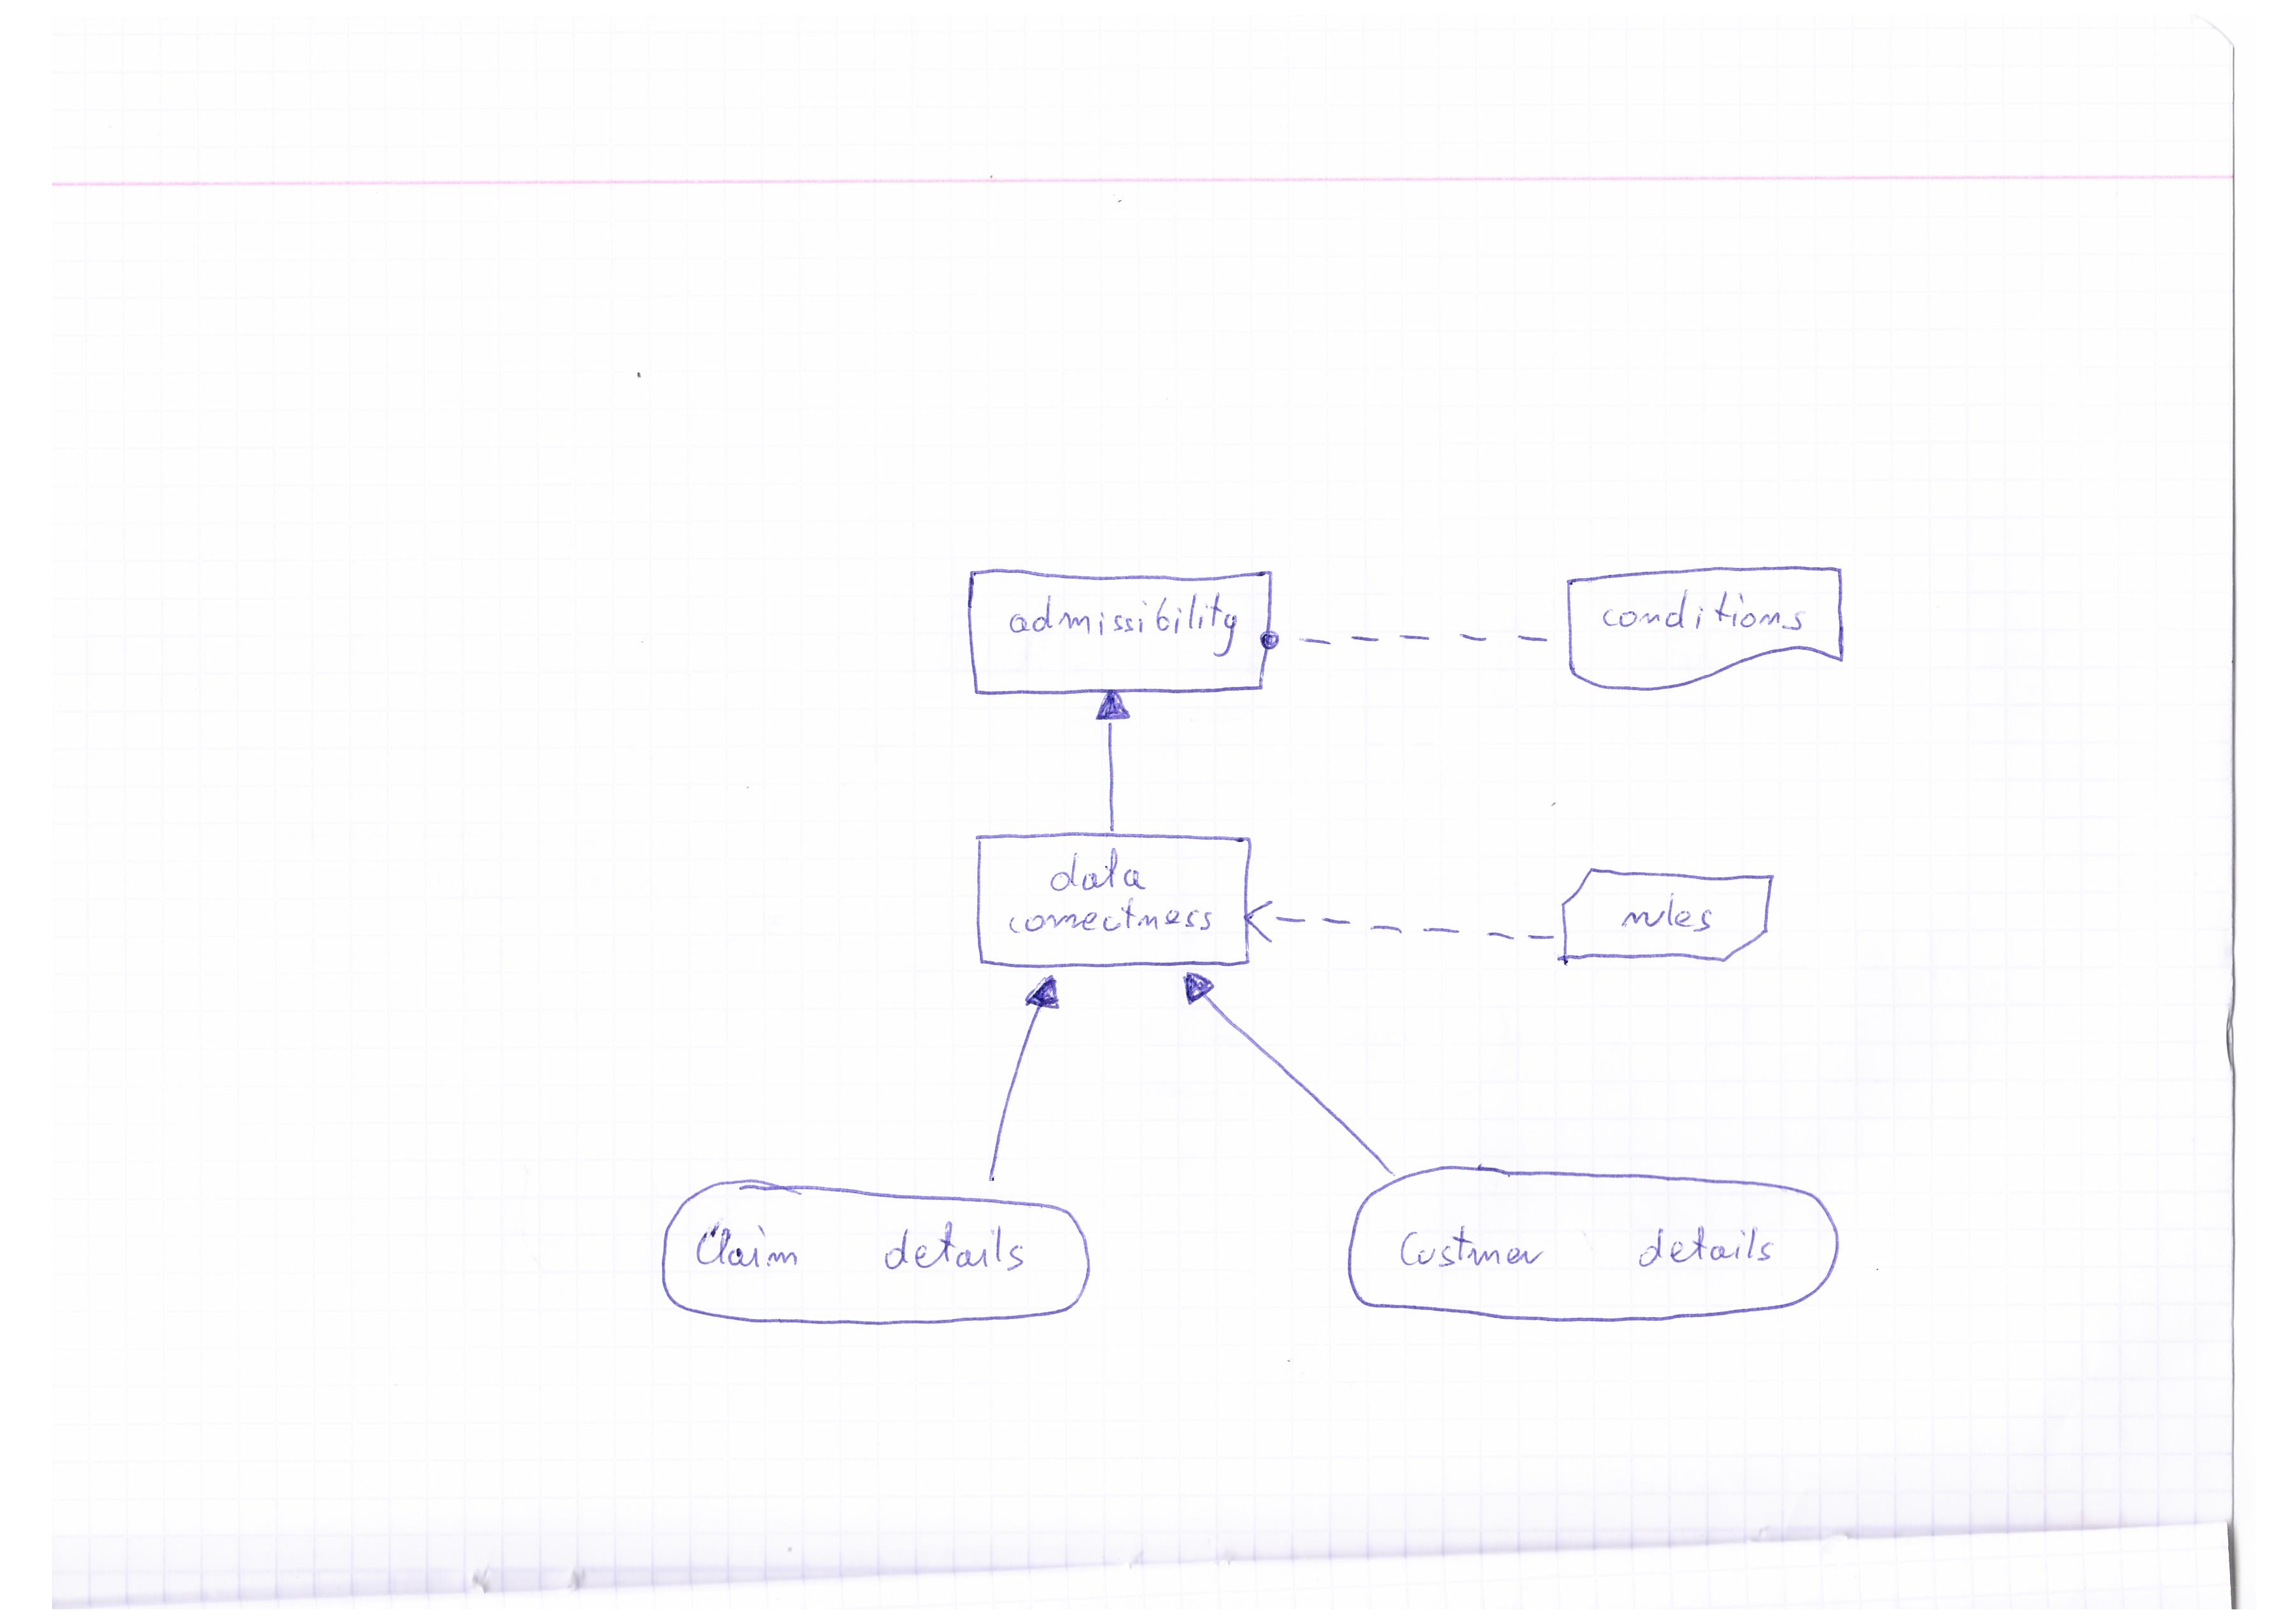 admissibility
conditions
data
correctness
rules
Claim details
Custmer details